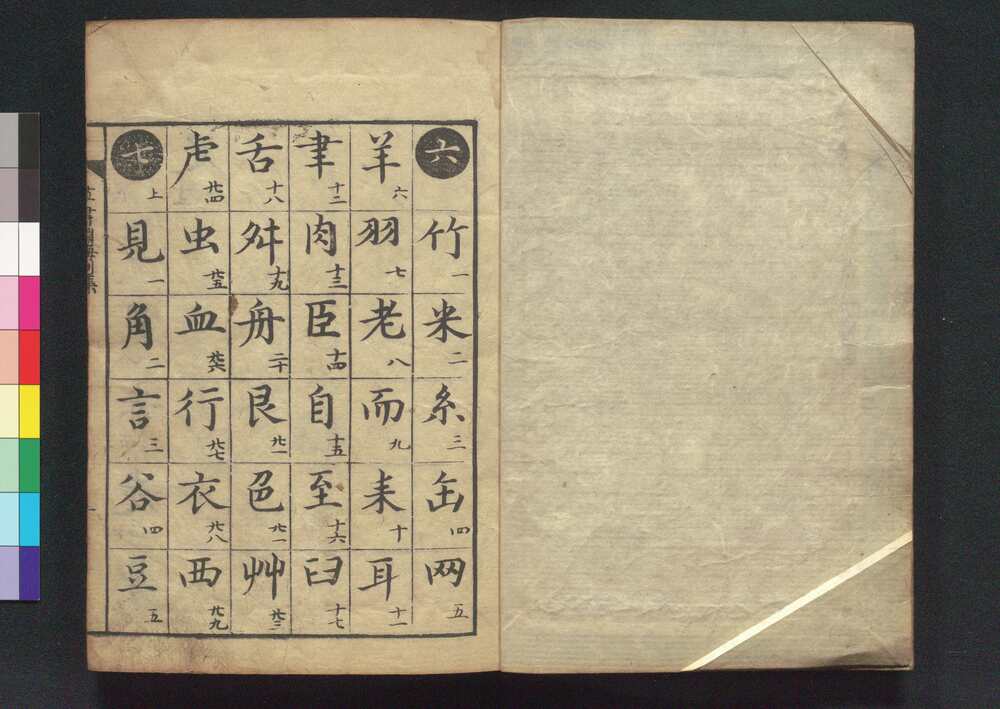 六 竹一 米二 糸三 缶四 网五
羊六 羽七 老八 而九 耒十 耳十一
聿十二 肉十三 臣十四 自十五 至十六 臼十七
舌十八 舛十九 舟二十 艮廿一 色廿二 艸廿三
虍廿四 虫廿五 血廿六 行廿七 衣廿八 西廿九
七上 見一 角二 言三 谷四 豆五